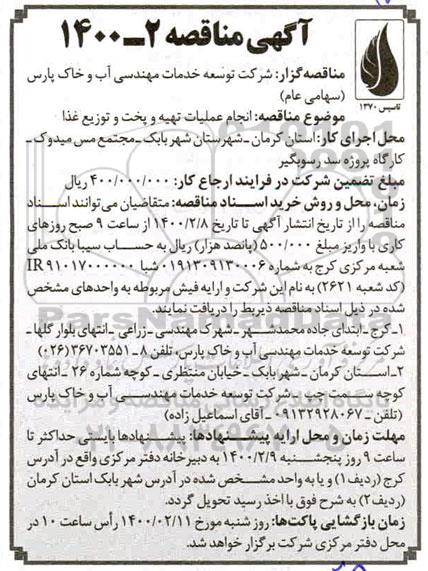 آگهی مناقصه ۲ــ۱۴۰۰
تاسیس ۱۳۷۰
مناقصه‌گزار: شرکت توسعه خدمات مهندسی آب و خاک پارس
(سهامی عام)
موضوع مناقصه: انجام عملیات تهیه و پخت و توزیع غذا
محل اجرای کار: استان کرمان ـ شهرستان شهربابک ـ مجتمع مس میدوک ـ
کارگاه پروژه سد رسوبگیر
مبلغ تضمین شرکت در فرایند ارجاع کار: ۴۰۰/۰۰۰/۰۰۰ ریال
زمان، محل و روش خرید اسناد مناقصه: متقاضیان می‌توانند اسناد
مناقصه را از تاریخ انتشار آگهی تا تاریخ ۱۴۰۰/۲/۸ از ساعت ۹ صبح روزهای
کاری با واریز مبلغ ۵۰۰/۰۰۰ (پانصد هزار) ریال به حساب سیبا بانک ملی
شعبه مرکزی کرج به شماره ۰۱۹۱۳۰۹۱۳۰۰۰۶ شبا IR ۹۱۰۱۷۰۰۰۰۰۰۰
(کد شعبه ۲۶۲۱) به نام این شرکت و ارایه فیش مربوطه به واحدهای مشخص
شده در ذیل اسناد مناقصه ذیربط را دریافت نمایند.
۱ـ کرج ـ ابتدای جاده محمدشهر ـ شهرک مهندسی ـ زراعی ـ انتهای بلوار گلها ـ
شرکت توسعه خدمات مهندسی آب و خاک پارس، تلفن ۸ ـ ۳۶۷۰۳۵۵۱ (۰۲۶)
۲ـ استان کرمان ـ شهربابک ـ خیابان منتظری ـ کوچه شماره ۲۶ ـ انتهای
کوچه سمت چپ ـ شرکت توسعه خدمات مهندسی آب و خاک پارس
(تلفن ـ ۰۹۱۳۲۹۲۸۰۶۷ ـ آقای اسماعیل زاده)
مهلت زمان و محل ارایه پیشنهادها: پیشنهادها بایستی حداکثر تا
ساعت ۹ روز پنجشنبه ۱۴۰۰/۲/۹ به دبیرخانه دفتر مرکزی واقع در آدرس
کرج (ردیف۱) و یا به واحد مشخص شده در آدرس شهربابک استان کرمان
(ردیف ۲) به شرح فوق با اخذ رسید تحویل گردد.
زمان بازگشایی پاکت‌ها: روز شنبه مورخ ۱۴۰۰/۰۲/۱۱ رأس ساعت ۱۰ در
محل دفتر مرکزی شرکت برگزار خواهد شد.